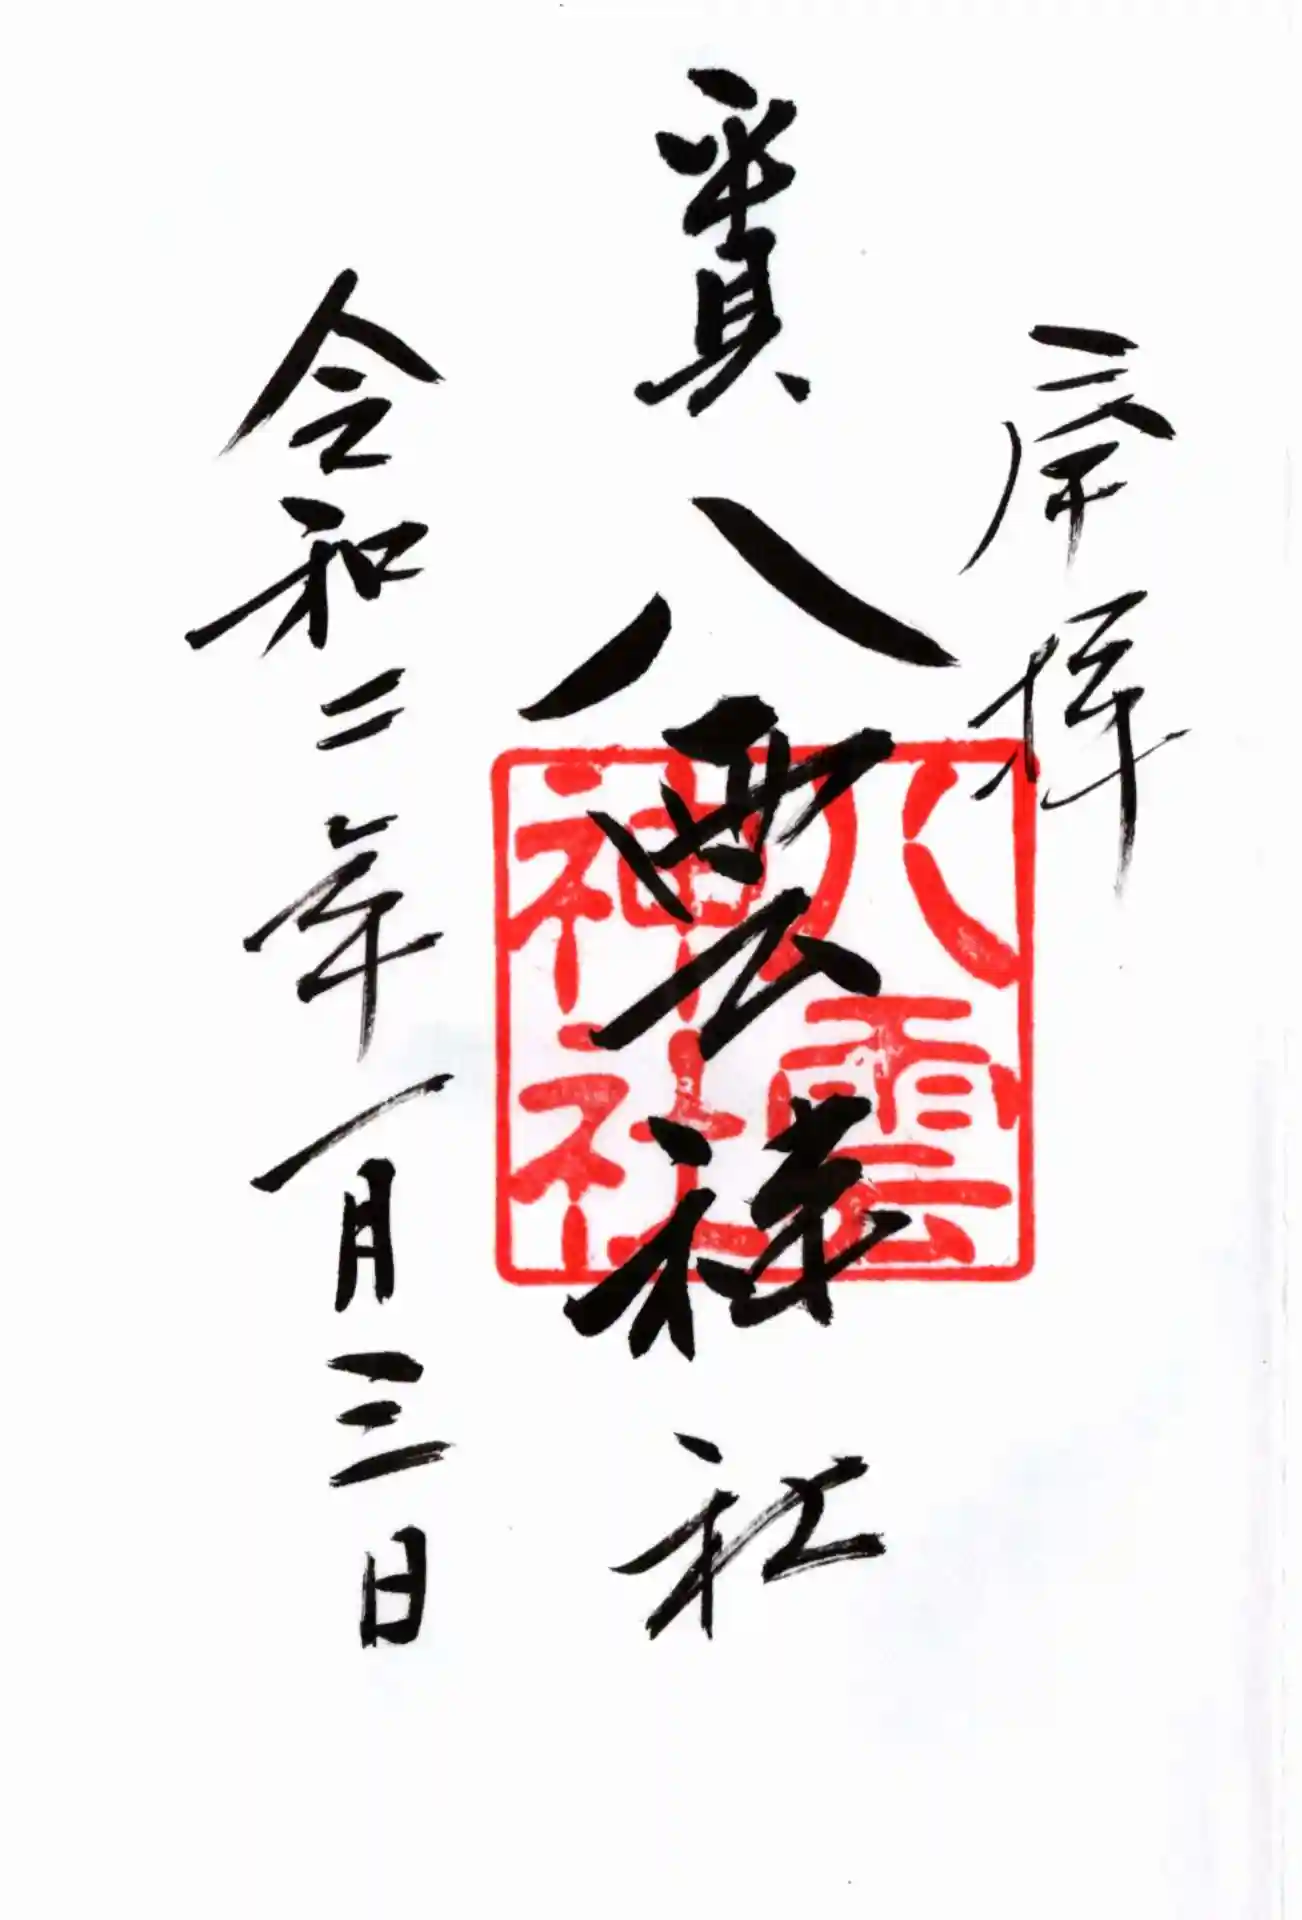 奉拝
八雲神社
八雲
神社
令和二年一月三日